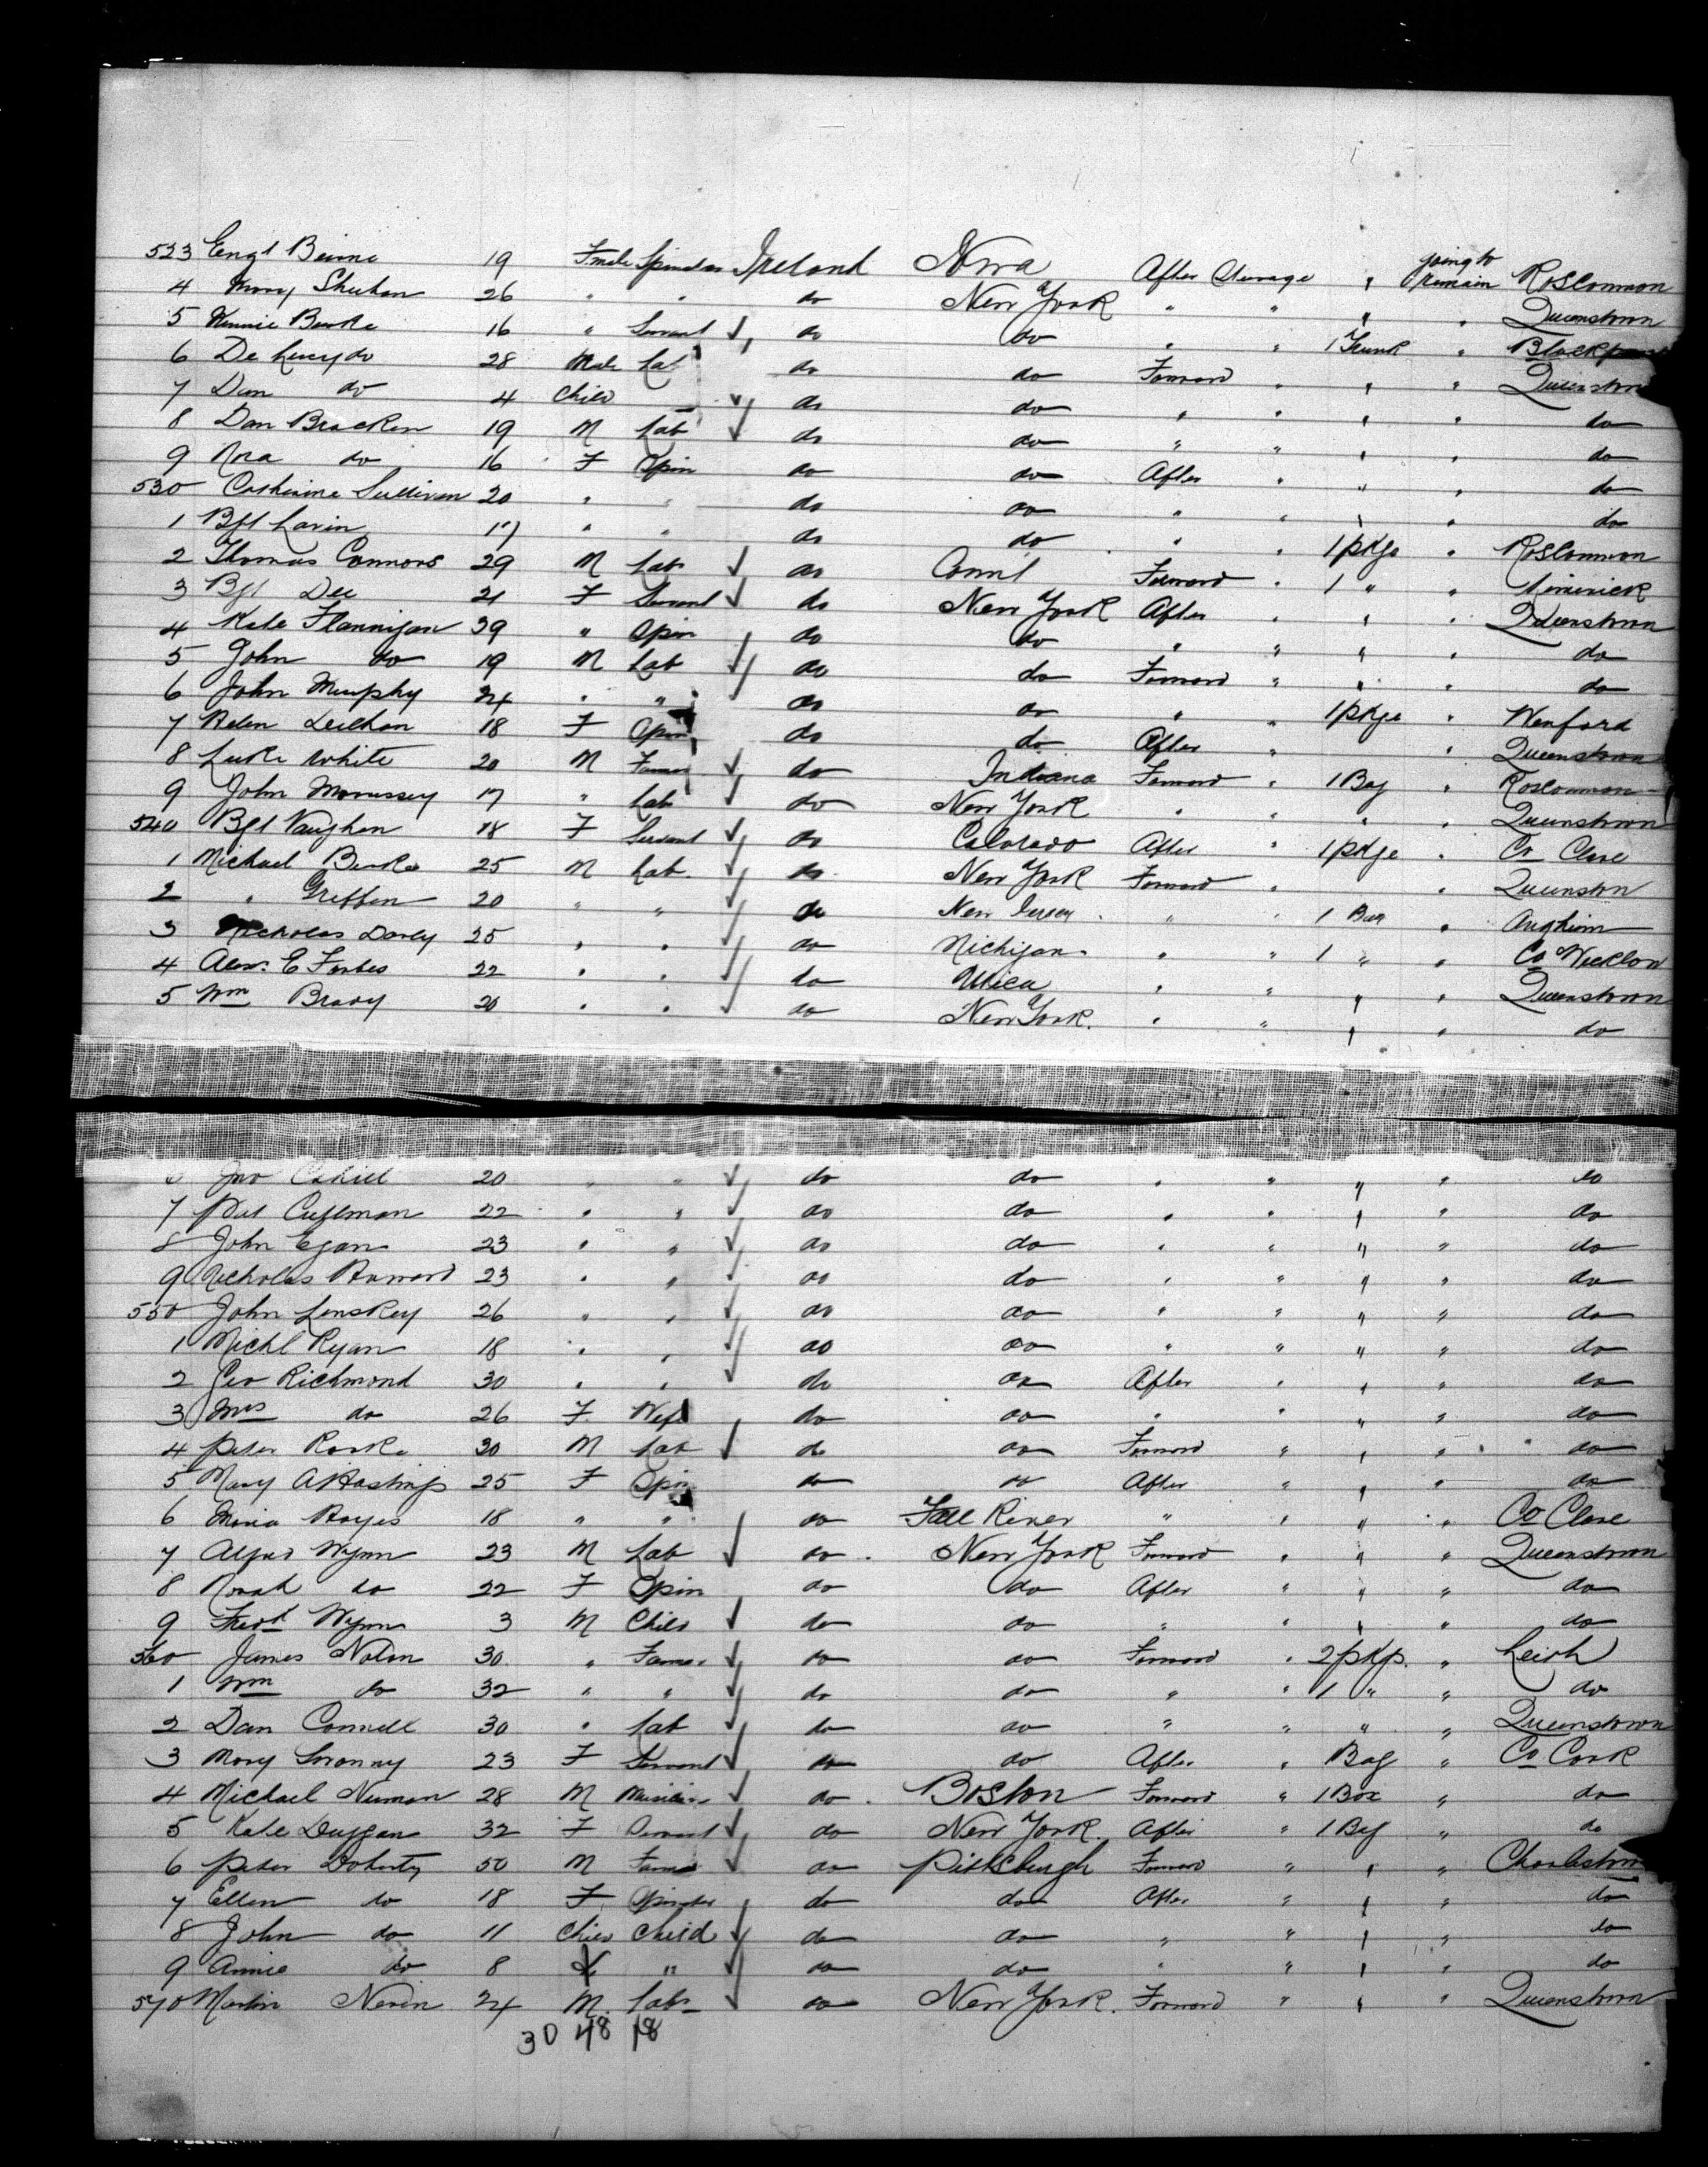 523 Beirne 19 Fmale Spinster Ireland After Steerage " going to remain Roscommon
4 Mary Sheehan 26 " " do New York " " " " Queenstown
5 Winnie Burke 16 " Servant do do " " 1 Trunk "
6 De Lucy do 28 Male Lab do do Forward " " " Queenstown
7 Dan do 4 Child do do " " " " do
8 Dan Bracken 19 M Lab do do " " " " do
9 Nora do 16 F Spin do do After " " " do
530 Catherine Sullivan 20 " " do do " " " " do
1 Bgt Lavin 17 " " do do " " 1 pkge " Roscommon
2 Thomas Connors 29 M Lab do Connt Forward " 1 " " Limerick
3 Bgt Dee 21 F Servant do New York After " " " Queenstown
4 Kate Flannigan 39 " Spin do do " " " " do
5 John do 19 M Lab do do Forward " " " do
6 John Murphy 24 " " do do " " 1 pkge " Wexford
7 Helen 18 F Spin do do After " " Queenstown
8 Luke White 20 M Farmer do Indiana Forward " 1 Bag " Roscommon
9 John Morrissey 17 " Lab do New York " " " " Queenstown
540 Bgt Vaughan 18 F Servant do Colorado After " 1 pkge " Co Clare
1 Michael Burke 25 M Lab. do New York Forward " " Queenstn
2 " Griffen 20 " " do New Jersey " " 1 Bag " Aughrim
3 Nicholas Darcy 25 " " do Michigan " " 1 " " Co Wicklow
4 Alexr. E Forbes 22 " " do Utica " " " " Queenstown
5 Wm Brady 20 " " do New York. " " " " do
6 Jno Cahill 20 " " do do " " " " do
7 Pat 22 " " do do " " " " do
8 John Egan 23 " " do do " " " " do
9 Nicholas Howard 23 " " do do " " " " do
550 John Linskey 26 " " do do " " " " do
1 Michl Ryan 18 " " do do " " " " do
2 Geo Richmond 30 " " do do After " " " do
3 Mrs do 26 F Wife do do " " " " do
4 Peter Rorke 30 M Lab do do Forward " " " do
5 Mary A Hastings 25 F Spin do do After " " " do
6 Maria Hayes 18 " " do Fall River " " " " Co Clare
7 Alfred Wynn 23 M Lab do New York Forward " " " Queenstown
8 Norah do 22 F Spin do do After " " " do
9 Fredk Wynn 3 M Child do do " " " " do
560 James Nolan 30 " Farmer do do Forward " 2 pkgs. " Leith
1 Wm do 32 " " do do " " 1 " " do
2 Dan Connell 30 " Lab do do " " " " Queenstown
3 Mary 23 F Servant do do After " Bag " Co Cork
4 Michael Numan 28 M Musician do Boston Forward " 1 Box " do
5 Kate Duggan 32 F Servant do New York After " 1 Bag " do
6 Peter Doherty 50 M Farmer do Pittsburgh Forward " " " Charlestown
7 Ellen do 18 F Spinster do do After " " " do
8 John do 11 Child Child do do " " " " do
9 Annie do 8 " do do " " " " do
570 Martin Nevin 24 M. Labr do New York. Forward " " " Queenstown
30 48 18